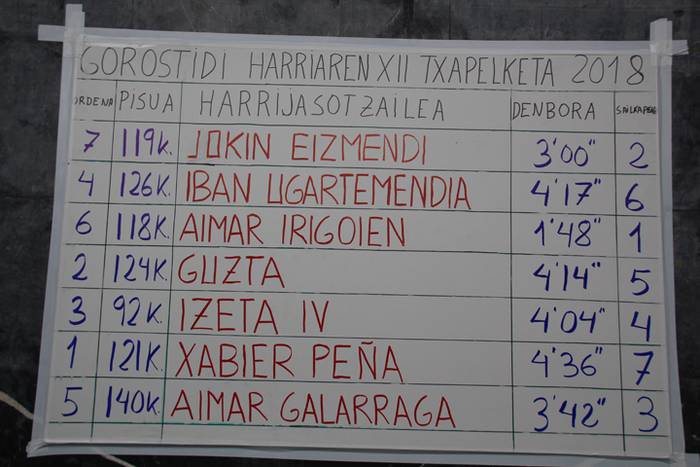 GOROSTIDI HARRIAREN XII TXAPELKETA 2018
ORDENA PISUA HARRIJASOTZAILEA DENBORA SAILKAPENA
7 119K. JOKIN EIZMENDI 3'00" 2
4 126K. IBAN UGARTEMENDIA 4'17" 6
6 118K. AIMAR IRIGOIEN 1'48" 1
2 124K. GUZTA 4'14" 5
3 92K. IZETA IV 4'04" 4
1 121K. XABIER PEÑA 4'36" 7
5 140K. AIMAR GALARRAGA 3'42" 3